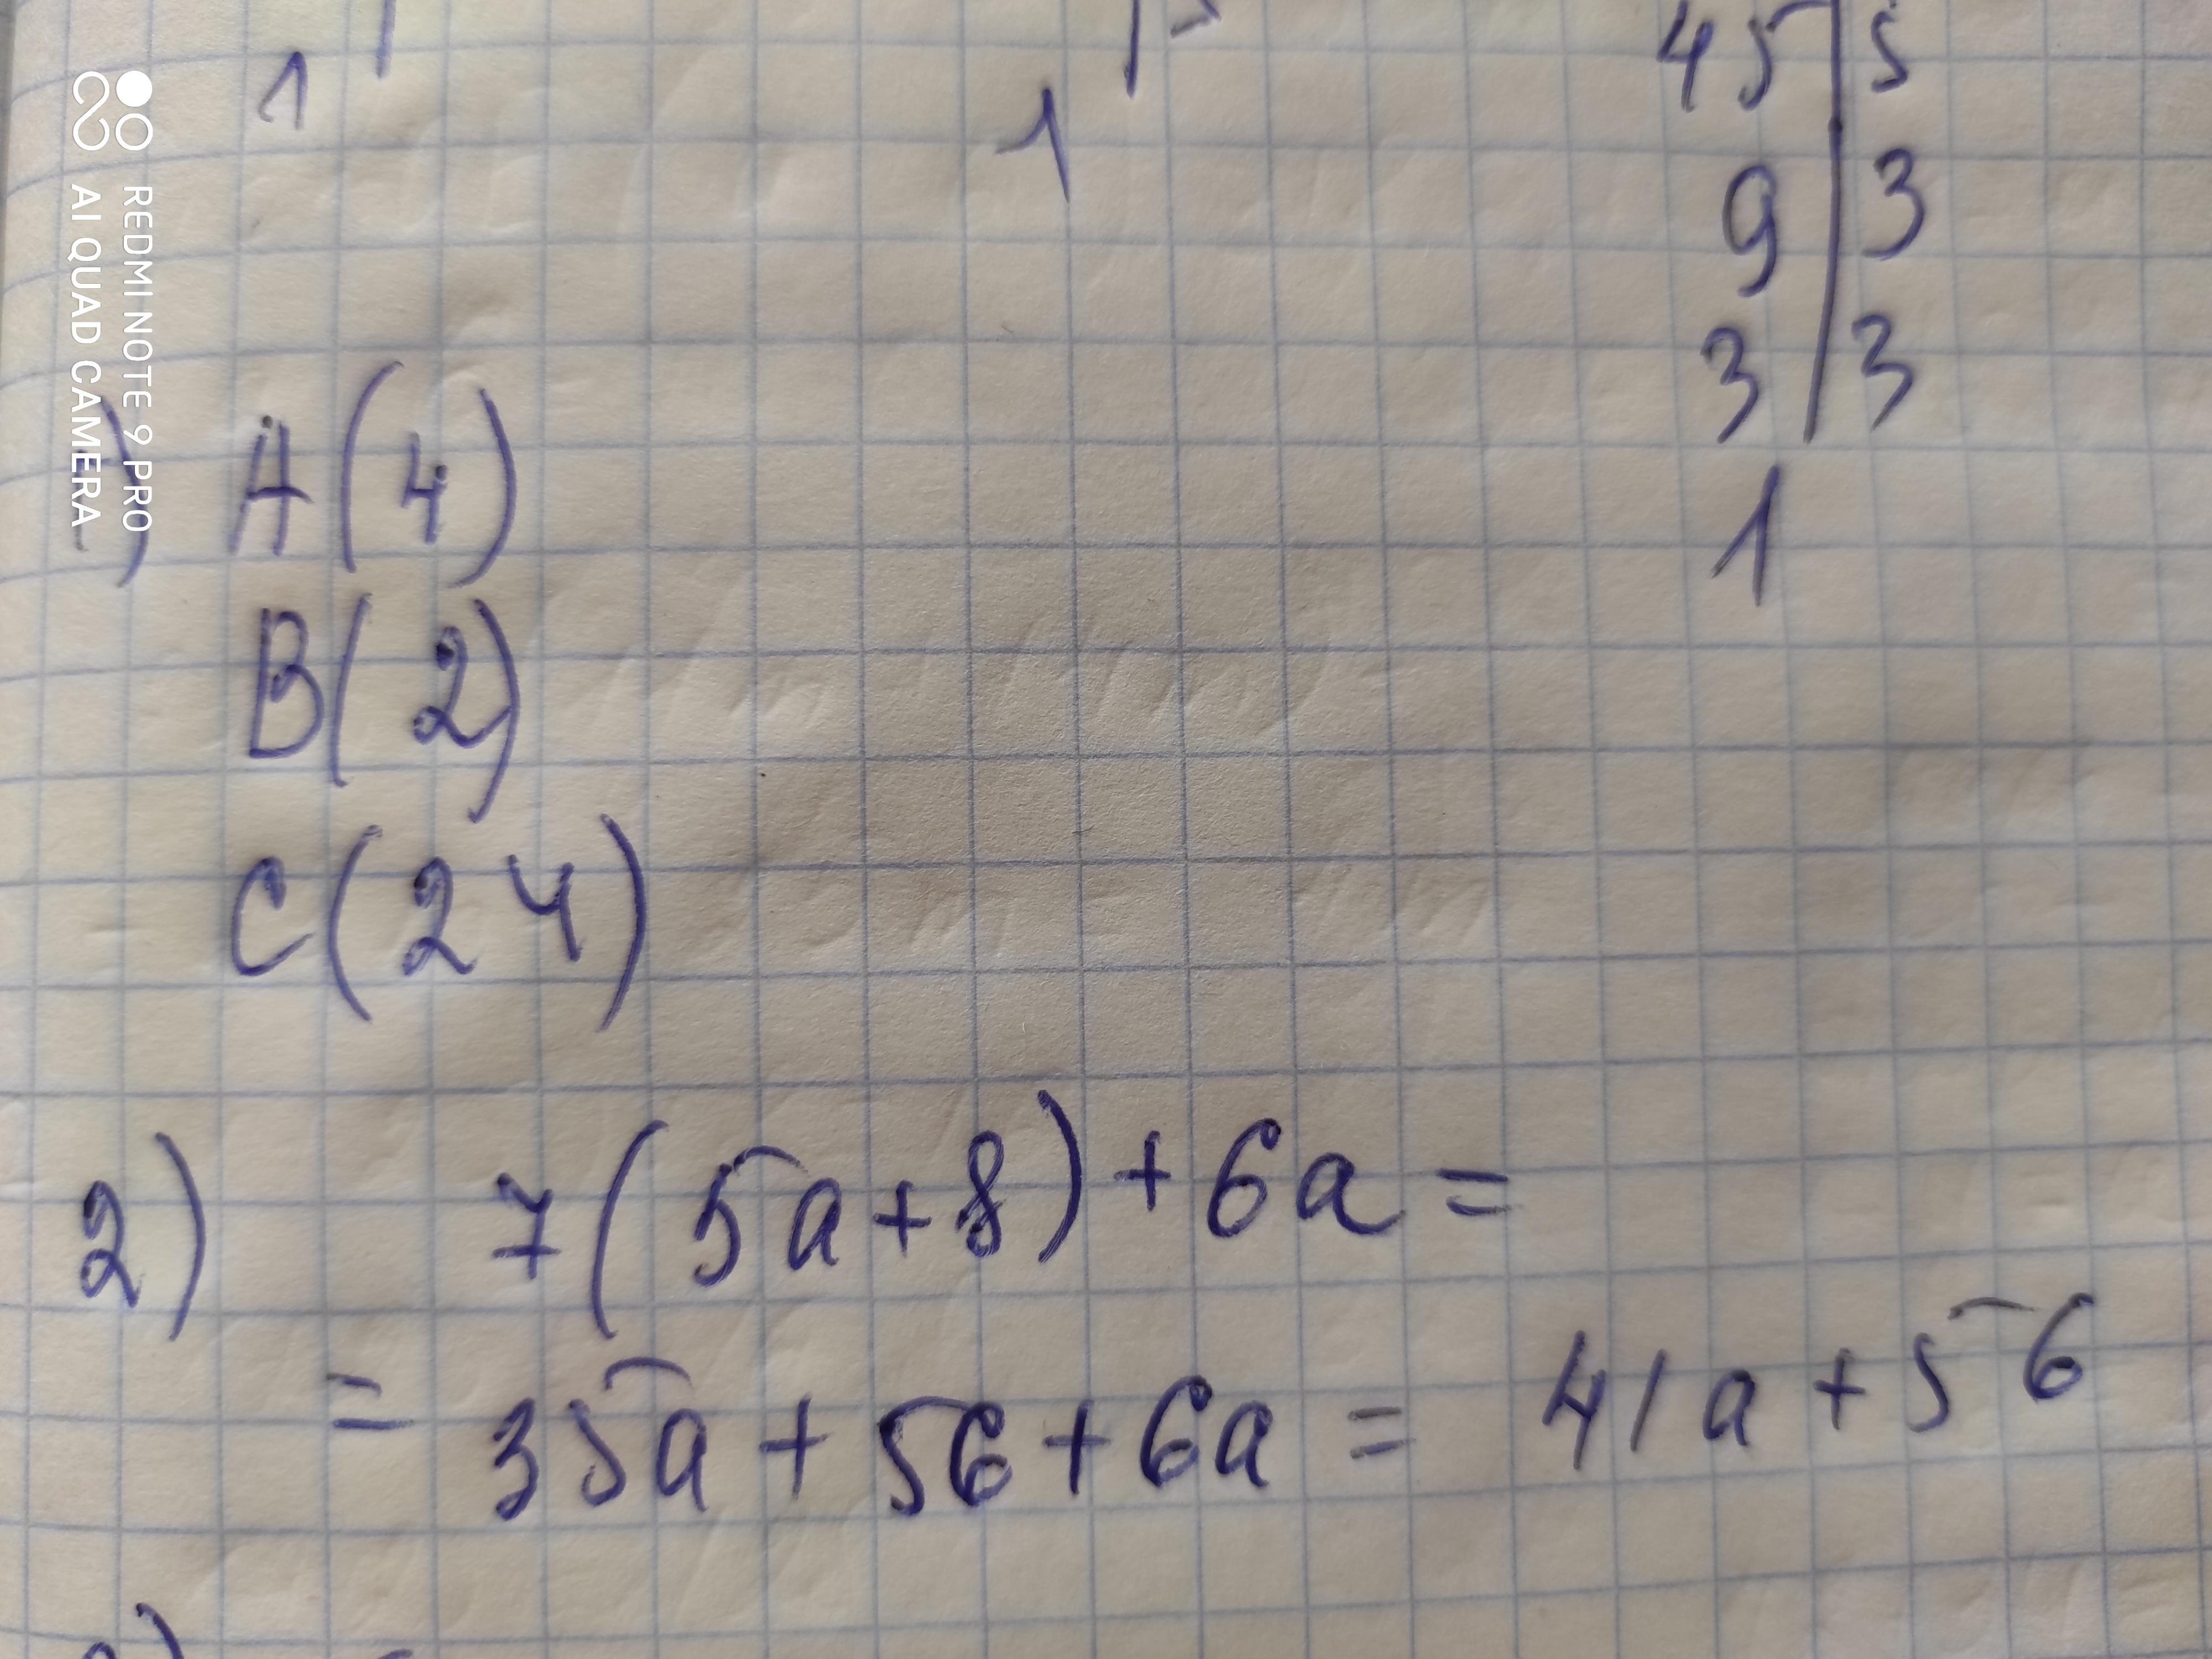 1
1
45 | 5
9 | 3
3 | 3
1
) A(4)
B(2)
C(24)
2) 7(5a+8)+6a=
= 35a + 56 + 6a = 41a + 56
REDMI NOTE 9 PRO
AI QUAD CAMERA